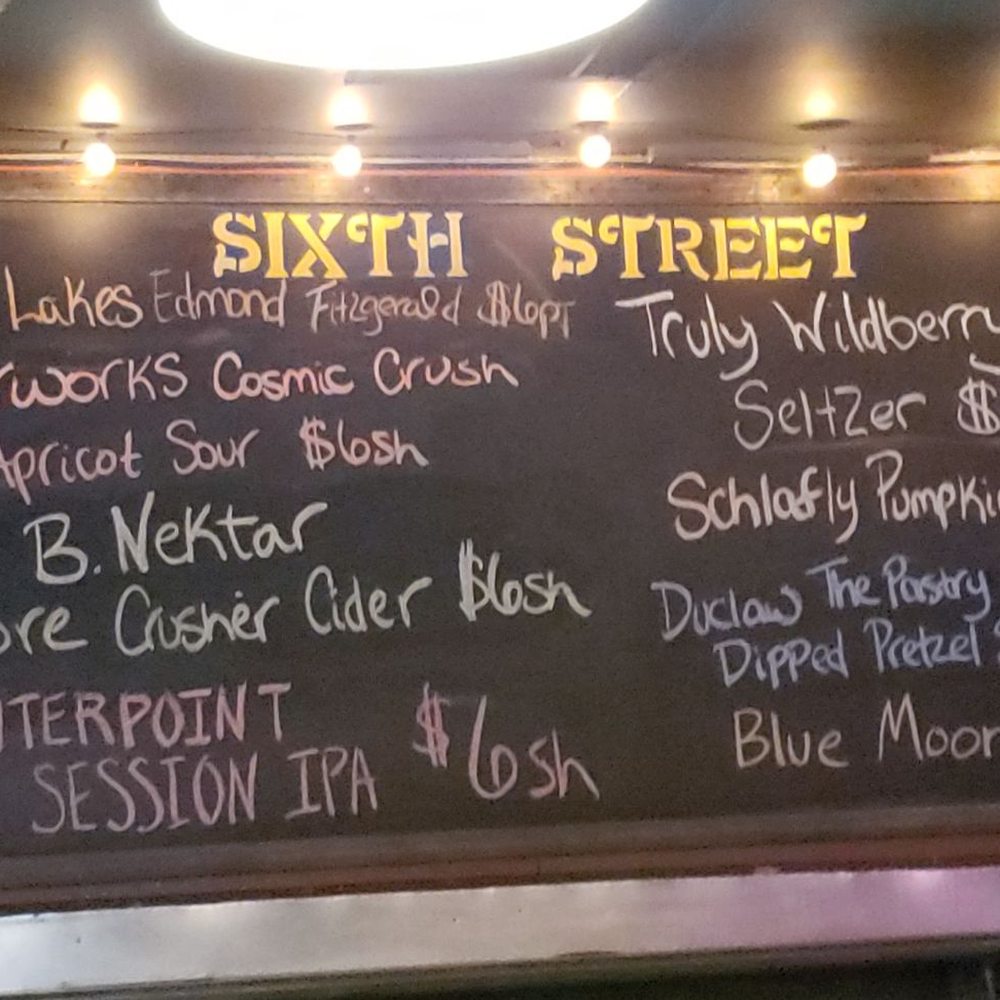 SIXTH STREET
Lakes Edmond Fitzgerald $6pt
rworks Cosmic Crush
Apricot Sour $6sh
B. Nektar
ore Crusher Cider $6sh
TERPOINT
SESSION IPA $6sh
Truly Wildberry
Seltzer $
Schlafly Pumpki
Duclaw The Pastry
Dipped Pretzel
Blue Moon